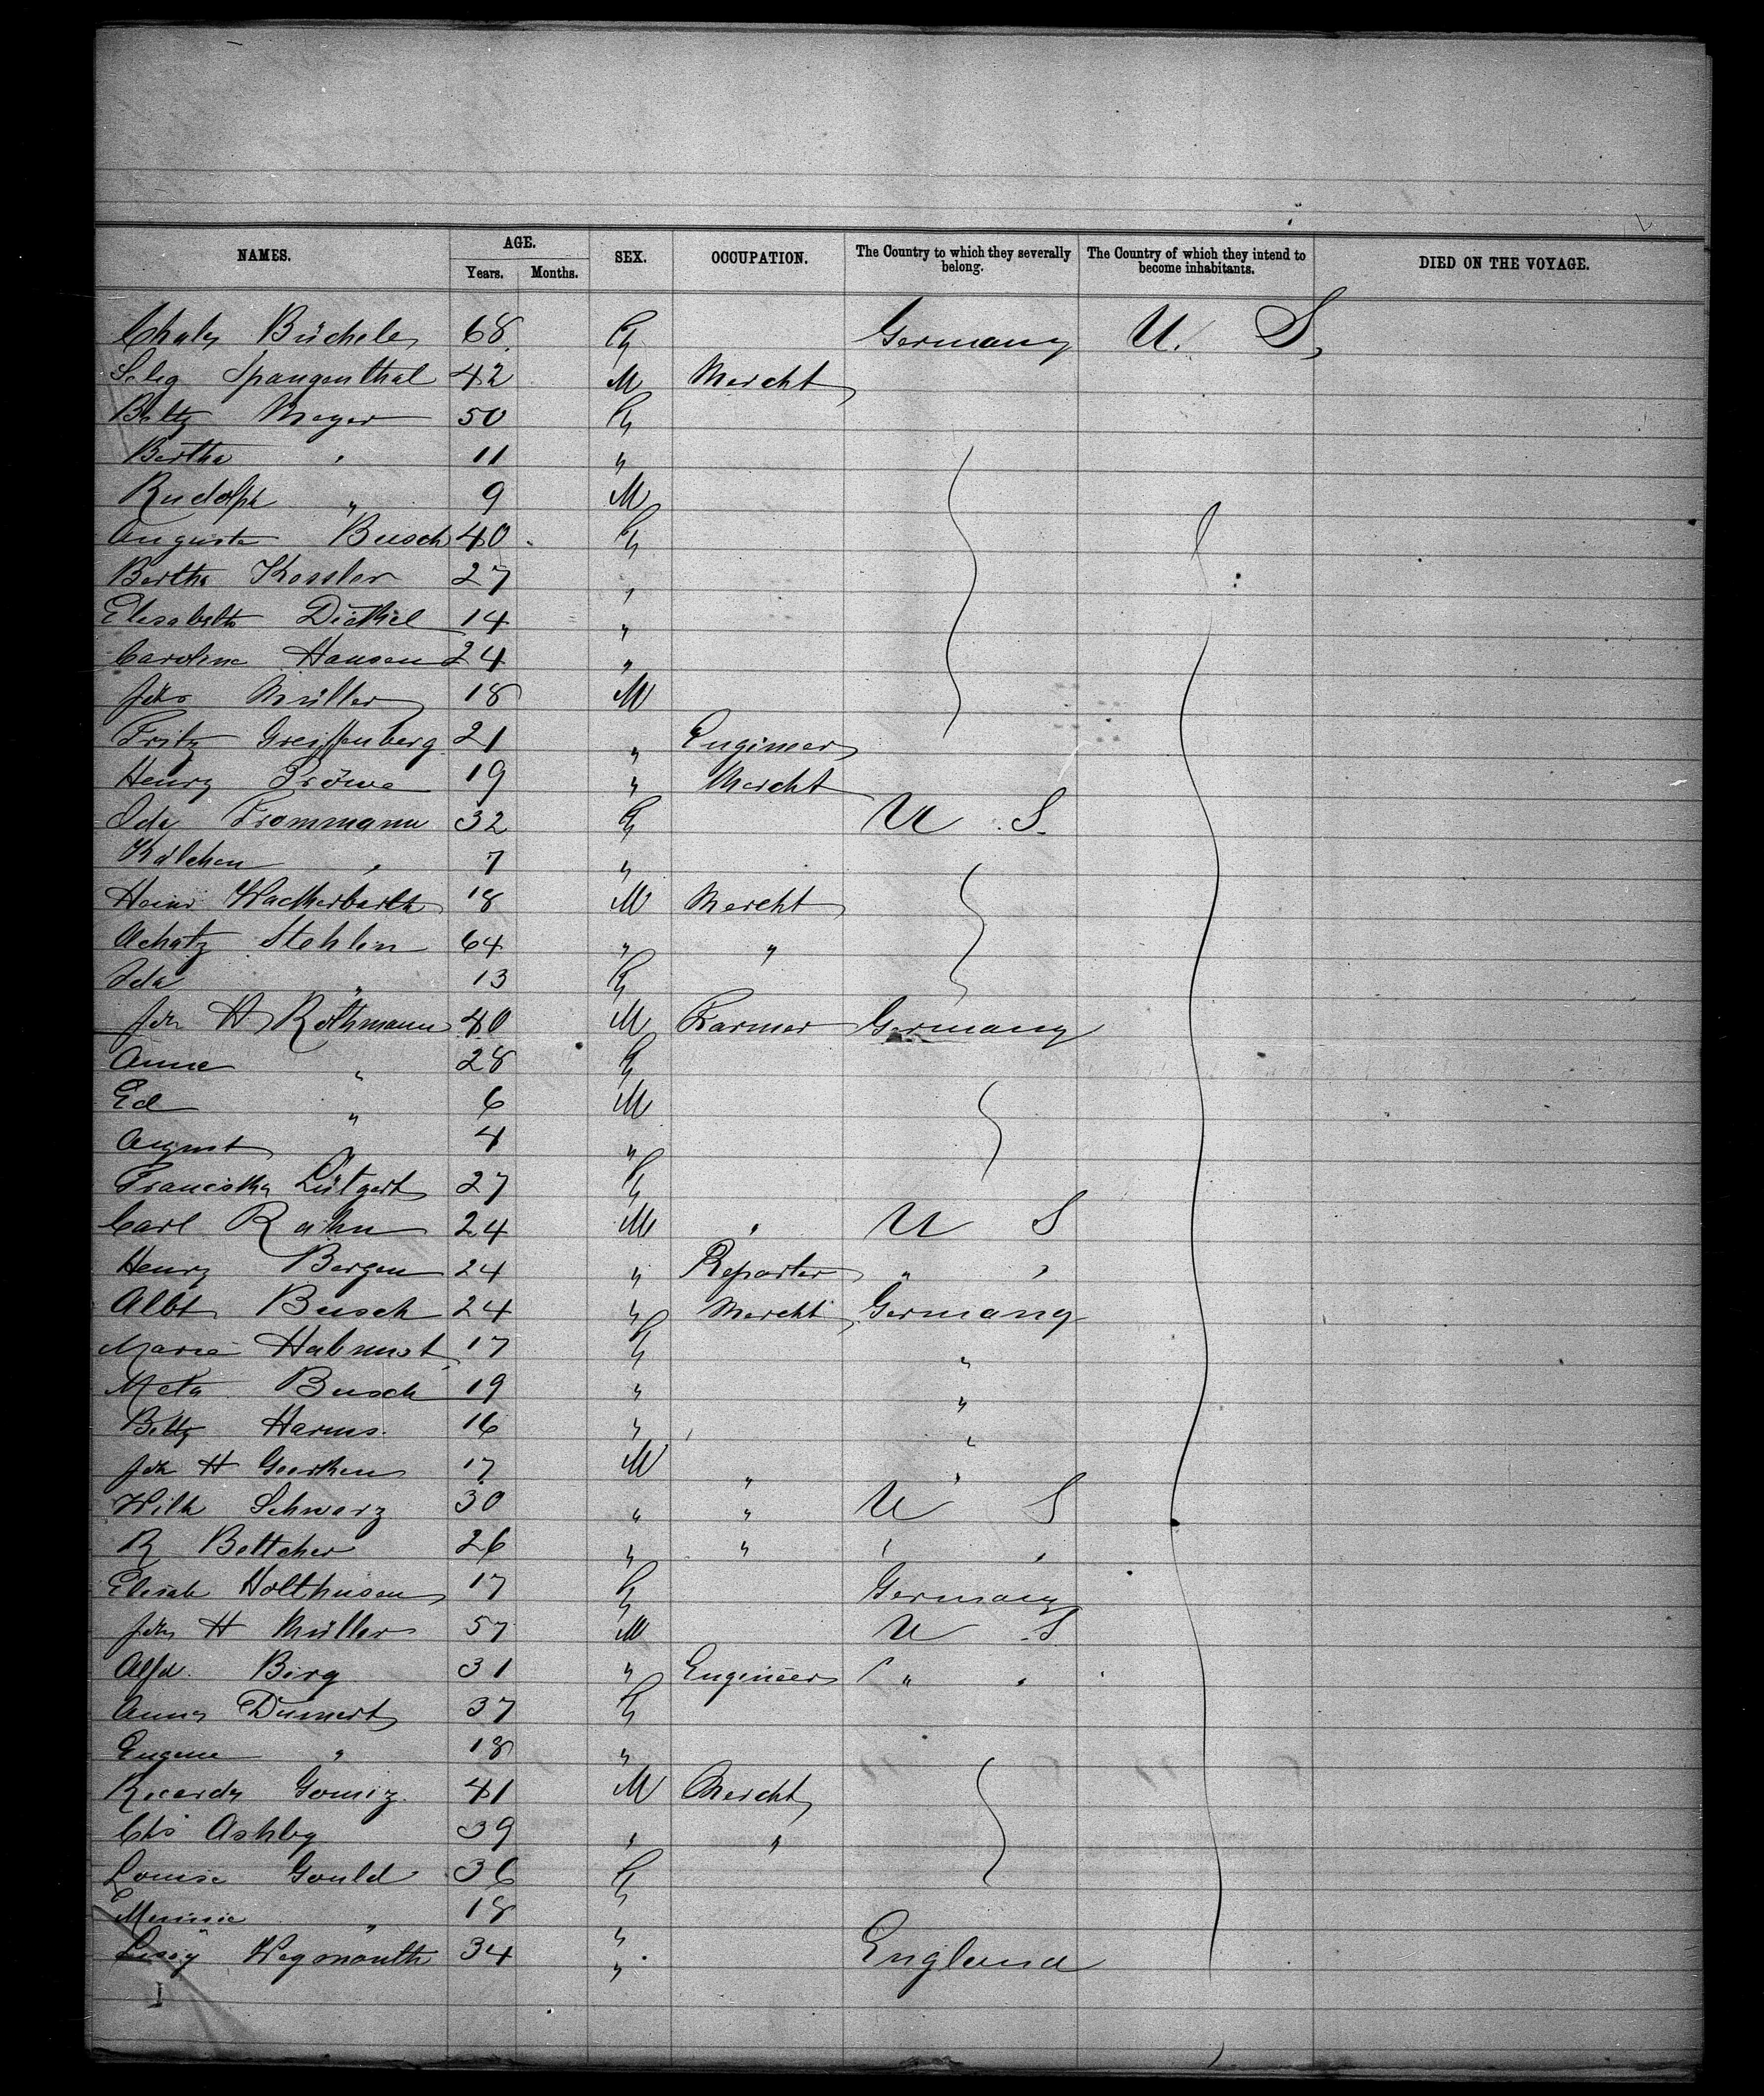 NAMES. AGE. SEX. OCCUPATION. The Country to which they severally belong. The Country of which they intend to become inhabitants. DIED ON THE VOYAGE.
Years. Months.
Büchele 68 Germany U. S.
Selig Spangenthal 42 M Mercht
Betty Meyer 50
Bertha " 11 "
Rudolph " 9 M
Auguste Busch 40
Bertha Kessler 27 "
Elisabeth Dickel 14 "
Caroline Hansen 24 "
Joh Müller 18 M
Fritz Greiffenberg 21 " Engineer
Henry 19 " Mercht
Ida Trommann 32 U S.
Kälchen " 7 "
Heinr Wackerbarth 18 M Mercht
Achatz Stehlin 64 " "
Ida " 13
Joh H Rothmann 40 M Farmer Germany
Anna " 28
Ed " 6 M
August " 4 "
Franciska Lütgert 27
Carl Rahn 24 M " U S
Henry Bergen 24 " Reporter " "
Albt Busch 24 " Mercht Germany
Marie 17 "
Meta Busch 19 " "
Betty Harms 16 " "
Joh H Geerken 17 M " "
Wilh Schwarz 30 " " U S
R Bettcher 26 " " " "
Elisab Holthusen 17 Germany
Joh H Müller 57 M U S
Alfd. Berg 31 " Engineer " "
Anna Dumert 37
Eugene " 18 "
Ricardo Gomiz 41 M Mercht
Chs Ashley 39 " "
Louise Gould 36
Minnie " 18 "
Lucy Weymouth 34 " England